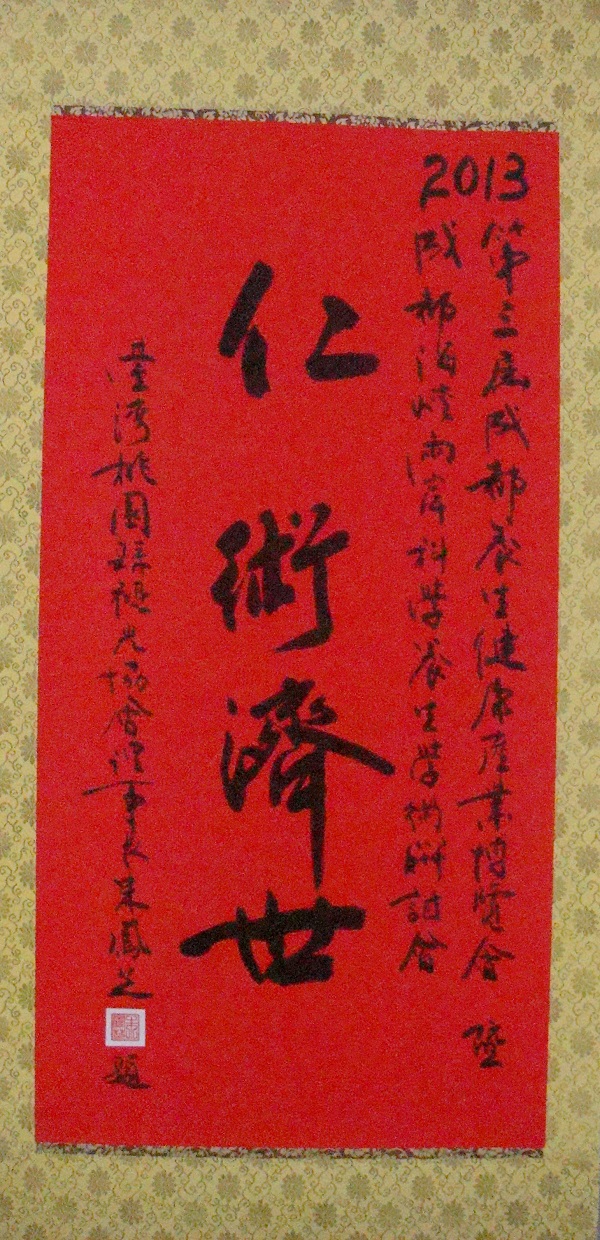 2013
第三屆成都养生健康産業博覽會
成都海峽兩岸科學养生學術研討會
仁術濟世
臺灣桃園 協會理事長朱鳳芝
題